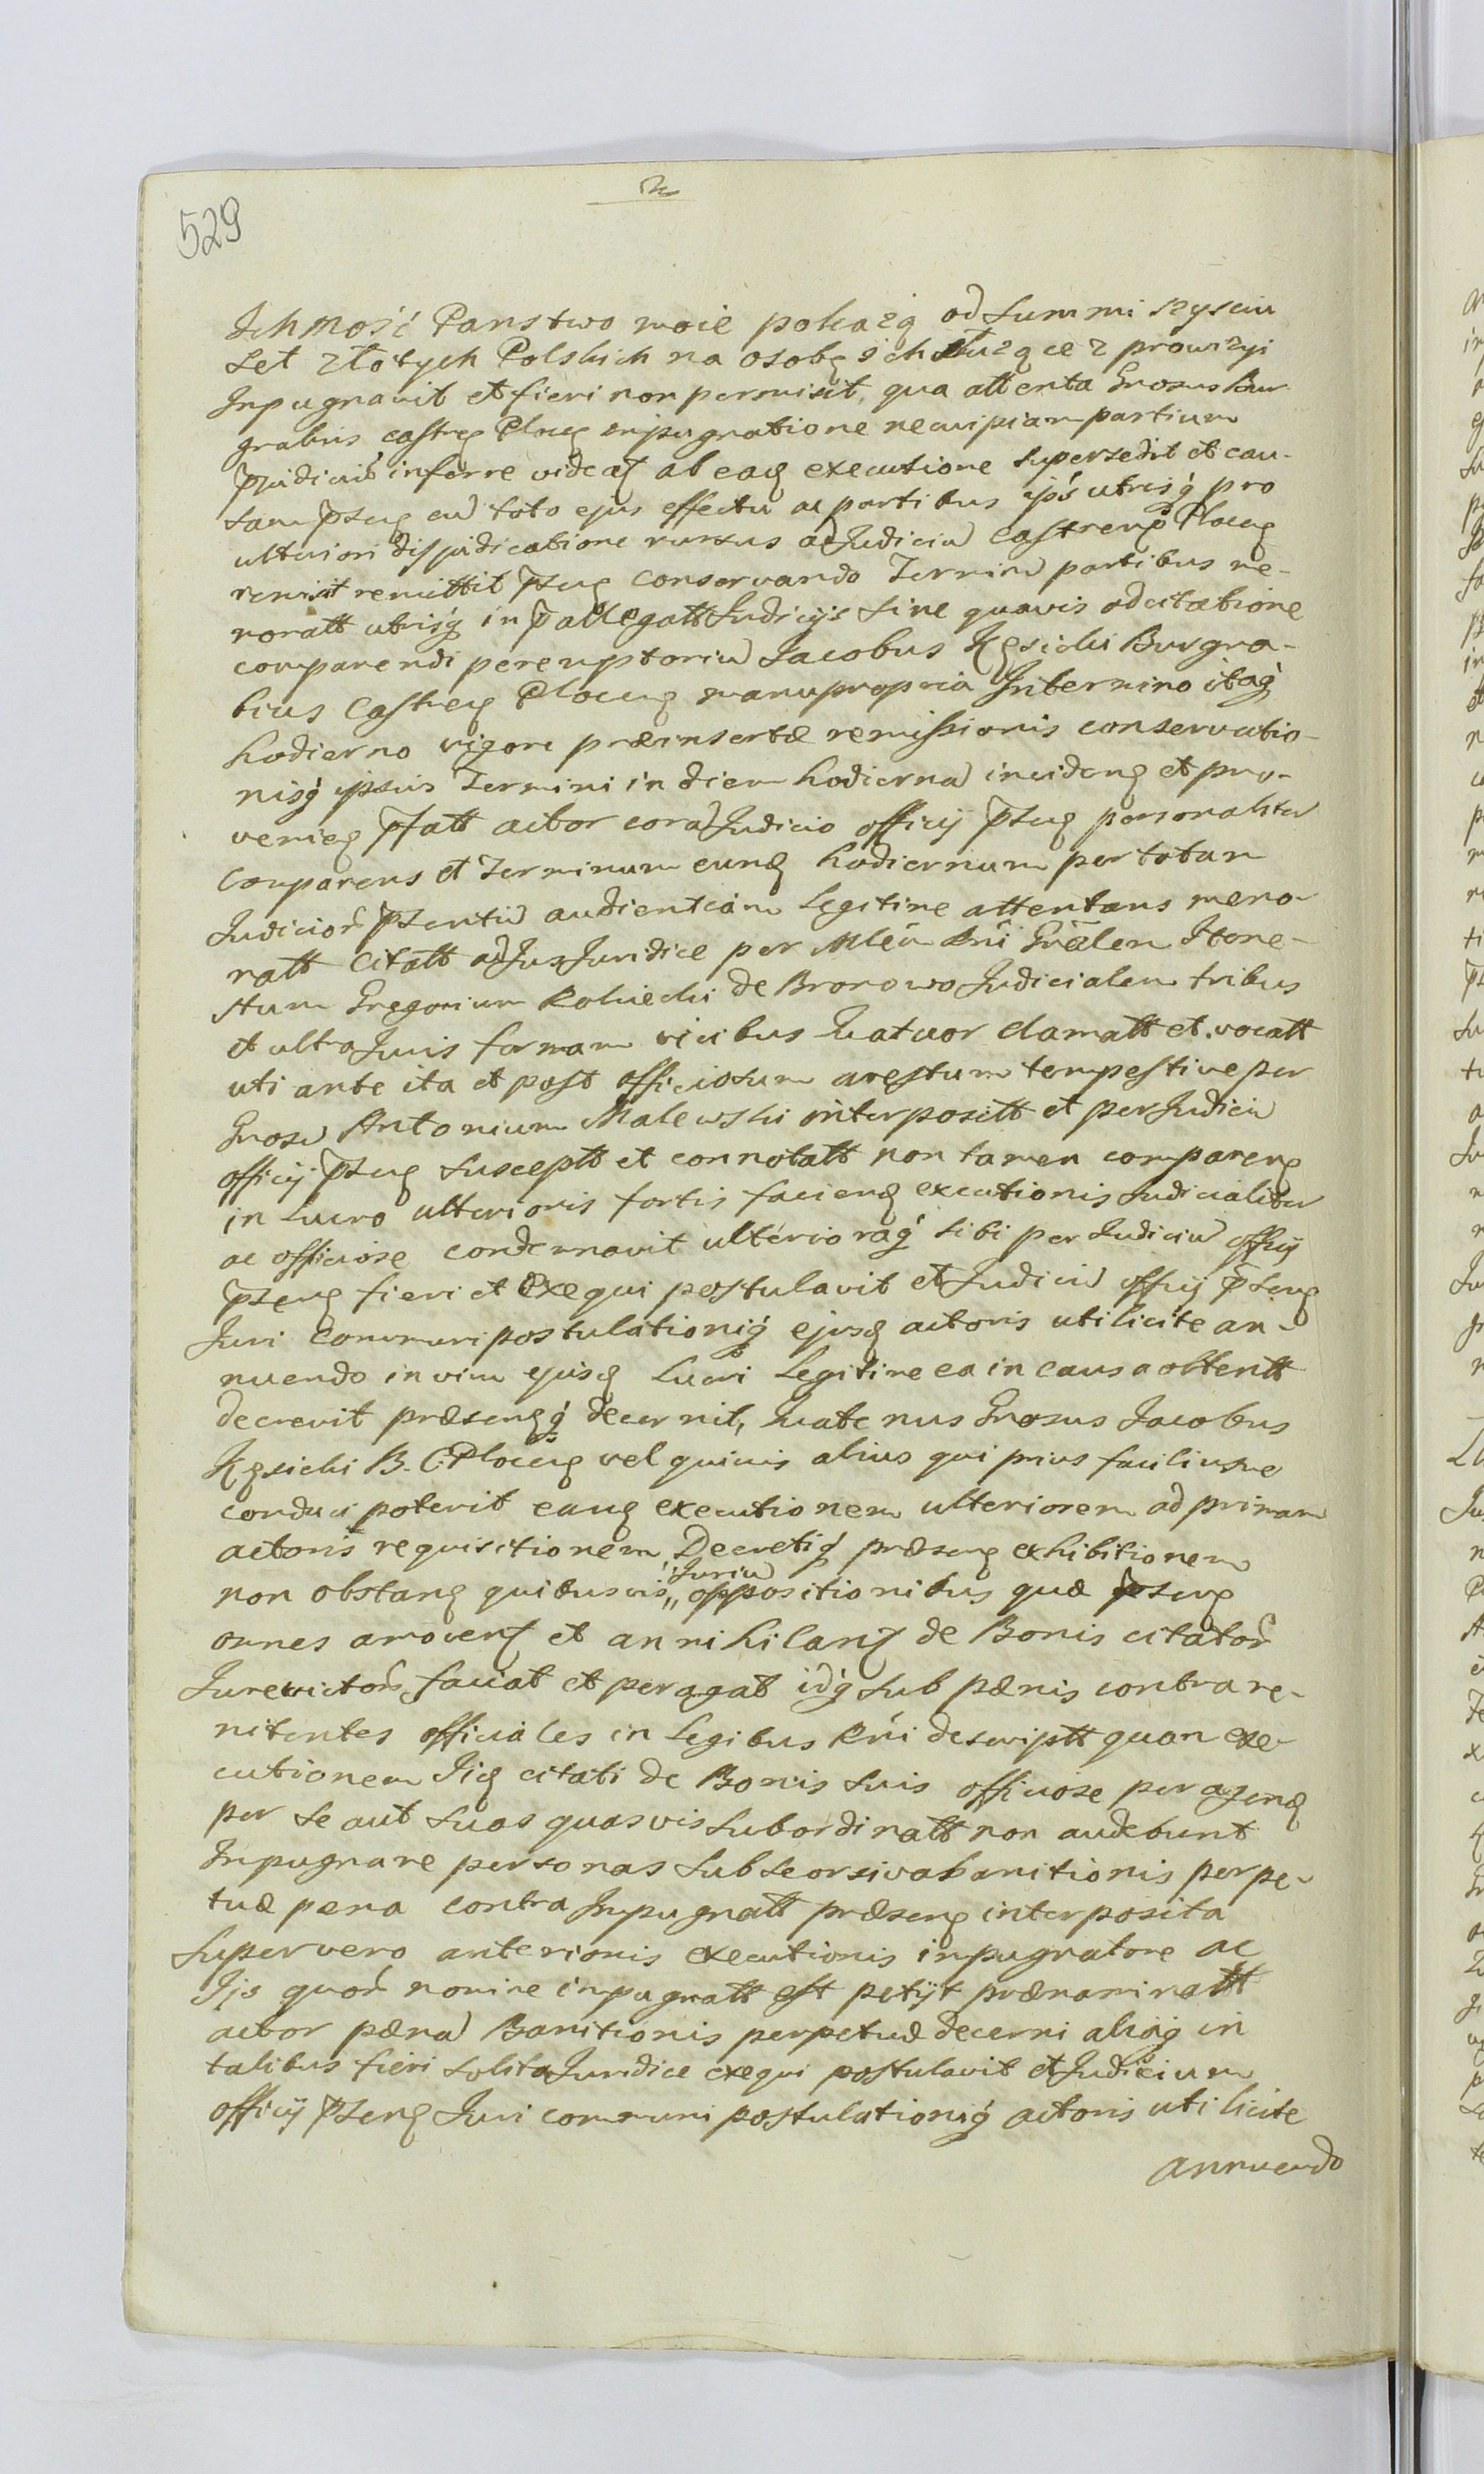 529
Ichmość Panstwo moie pokażą od Summi szysciu
Set złotych Polskich na osobę ich służące z prowizyi
Inpugnavit et fieri non permisit, qua attenta Grosus Bur
grabius castreñ Ploceñ inpugnatione ne cuipiam partium
inferre videat ab eaq executione supersedit et cau-
sam cu toto ejus effectu ac partibus ips utrisq pro
ulteriori disjudicatione rursus ad Judicia Castreñ Ploceñ
remisit remittit pseñ conservando Terminu partibus me-
moratt utrisq in p allegatt Judicijs sine quavis adcitatione
comparendi peremptoriu Jacobus Kęsicki Burgra-
bius Castreñ Ploceñ manupropria In termino itaq
hodierno vigore præinsertæ remissionis conservatio-
nisq ipsius Termini in diem hodierna incideñ et pro-
venieñ pfatt actor cora Judicio officij pseñ personaliter
comparens et Terminum eund hodiernum per totam
Judicior psentiu audientiam Legitime attentans memo-
ratt citatt ad Jus Juridice per Mlem Rni Gnalem Hone-
stum Gregorium Rokicki de Bronowo Judicialem tribus
et ultra Juris formam vicibus Quatuor clamatt et vocatt
uti ante ita et post officiosum arestum tempestive per
Grosu Antonium Malewski interpositt et per Judiciu
officij pseñ susceptt et connotatt non tamen compareñ
in Lucro ulterioris fortis faciend executionis Judicialiter
ac officiose condemnavit ulterioraq sibi per Judiciu officij
pseñ fieri et exequi postulavit et Judiciu officij pseñ
Juri communi postulationiq ejusd actoris uti licite an-
nuendo in vim ejusd Lucri Legitime ea in causa obtentt
decrevit præsenq decernit, Quatenus Grosus Jacobus
Kęsicki B. C. Ploceñ vel quivis alius qui prius faciliusve
conduci poterit eand executionem ulteriorem ad primam
actoris requisitionem Decretiq præseñ exhibitionem
non obstañ quibusvis „Juriu oppositionibus quæ pseñ
omnes amovent et annihilant de Bonis citator
Jurevictor faciat et peragat idq sub pænis contra re-
nitentes officiales in Legibus Rni descriptt quam exe-
cutionem Iid citati de Bonis suis officiose peragend
per se aut suas quasvis subordinatt non audebunt
Inpugnare personas sub seorsiva banitionis perpe-
tuæ pena contra Inpugnatt præseñ interposita
Super vero anterioris executionis inpugnatore ac
Ijs quor nomine inpugnatt est petijt prænominatt
actor pæna Banitionis perpetuæ decerni aliaq in
talibus fieri solita Juridice exequi postulavit et Judicium
officij pseñ Juri communi postulationiq actoris uti licite
annuendo